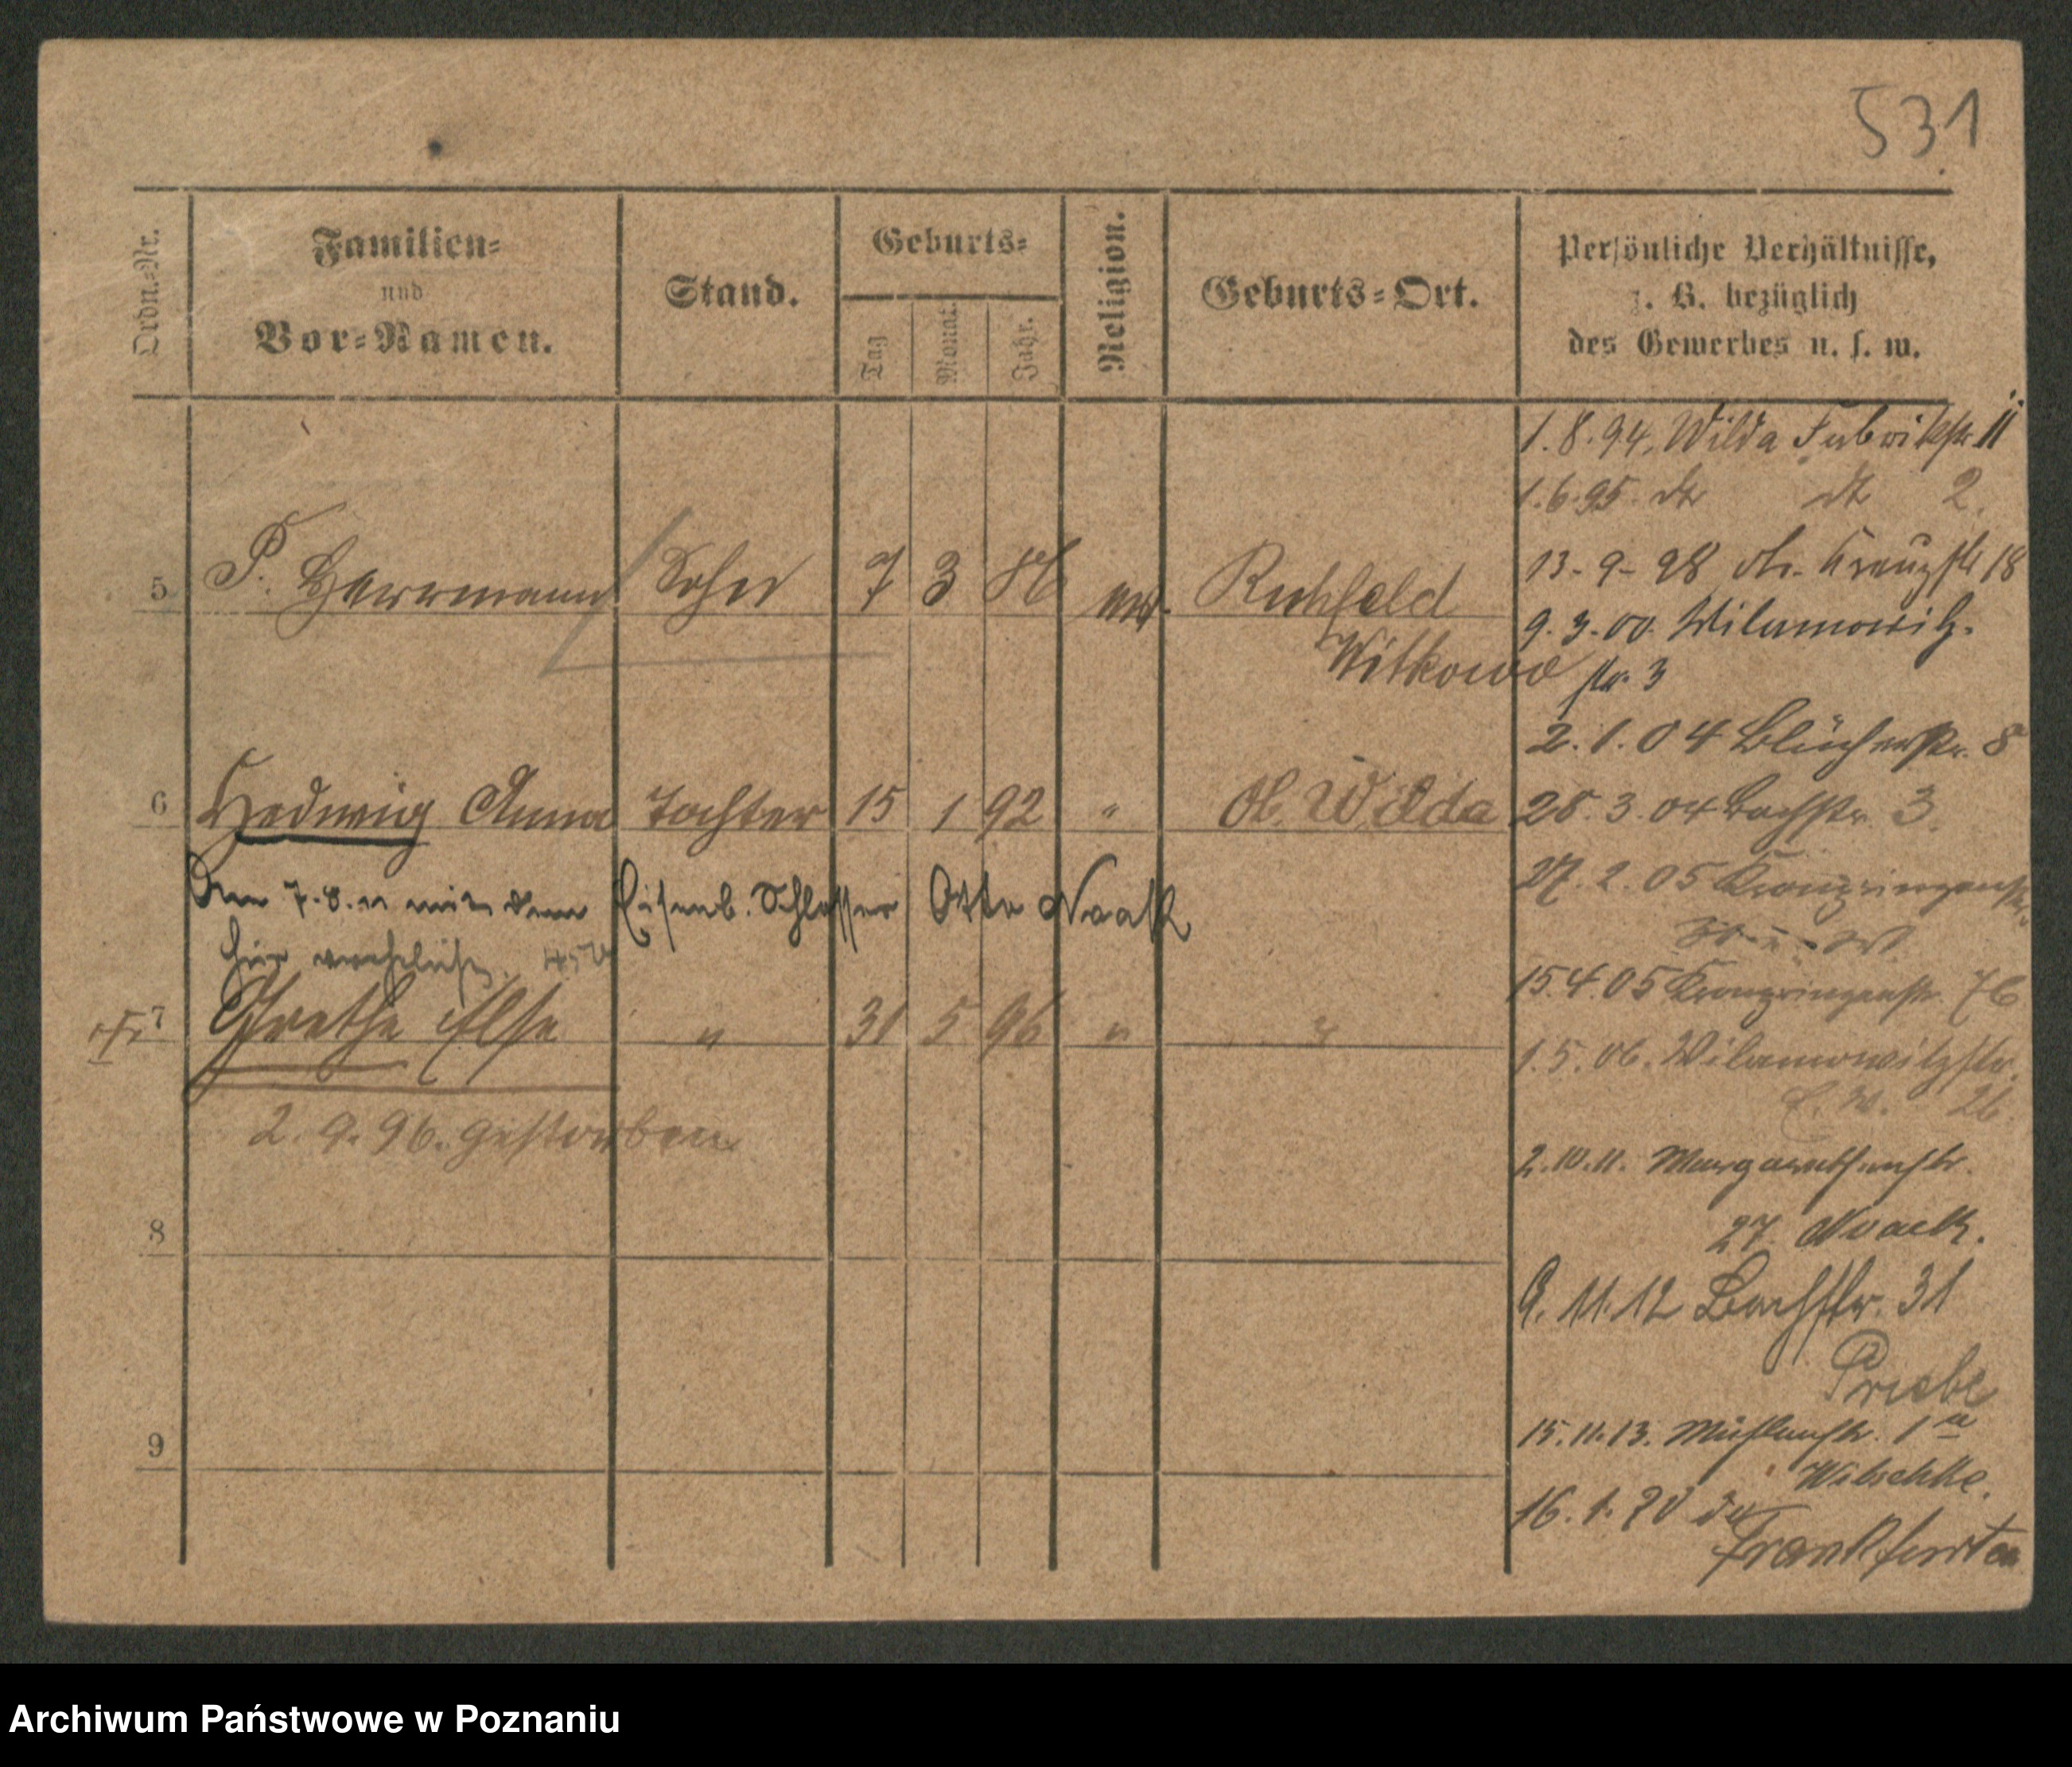 531
Ordn.-Nr.
Familien-
und
Vor-Namen.
Stand.
Geburts-
Tag
Monat.
Jahr.
Religion.
Geburts-Ort.
Persönliche Verhältnisse,
z. B. bezüglich
des Gewerbes u. s. w.
1.8.94. Wilda Fabrikstr. 11
1.6.95. dto dto 2.
13-9-98 Kreuzstr 18
5 P. Herrmann Sohn 7 3 86 Ruhfeld
9.3.00. Wilamowitz-
Witkowo
str. 3
2.1.04 Blücherstr. 8
6 Hedwig Anna Tochter 15 1 92 " Ob. Wilda
28.3.04 Bachstr. 3.
27.2.05 Kronprinzenstr.
Am 7.8.11 mit dem Eisenb. Schlosser Otto Noack
hier verehelicht.
15.4.05 Kronprinzenstr. 76
7 Grethe Else " 31 5 96 " "
1.5.06. Wilamowitzstr.
26.
2.9.96. gestorben
2.10.11. Margarethenstr.
27. Noack.
8
9.11.12 Bachstr. 31
Priebe
15.11.13. Mühlenstr. 1a
9
Witschke.
16.1.20
Frankfurt
Archiwum Państwowe w Poznaniu